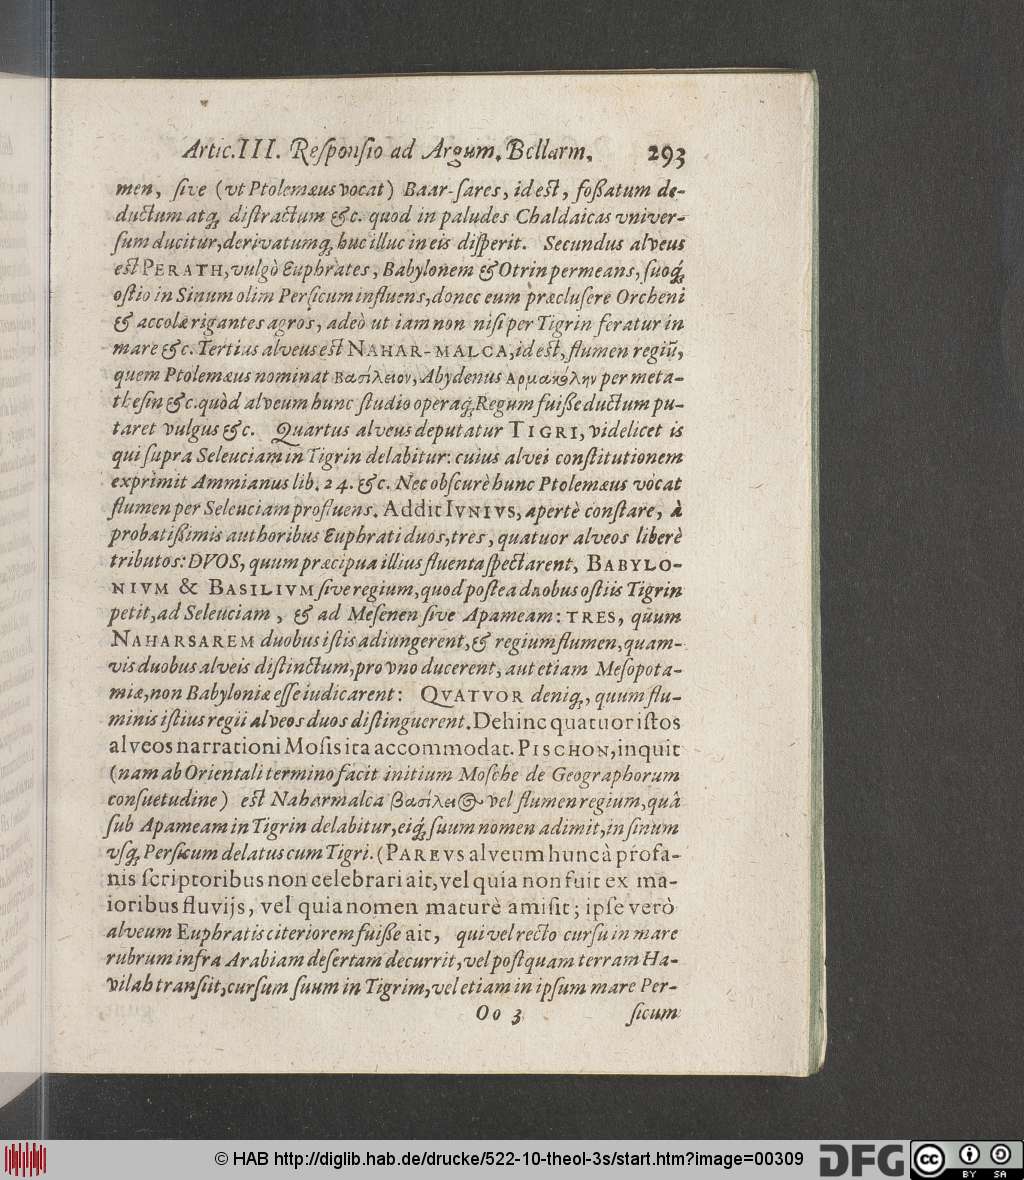 Artic. III. Reſponſio ad Argum. Bellarm. 293
men, ſive (vt Ptolemæus vocat) Baar-ſares, id eſt, foßatum de-
ductum atq́ꝫ diſtractum &c. quod in paludes Chaldaicas vniver-
ſum ducitur, derivatumq́ꝫ huc illuc in eis diſperit. Secundus alveus
eſt PERATH, vulgò Euphrates, Babylonem & Otrin permeans, ſuoq́ꝫ
oſtio in Sinum olim Perſicum influens, donec eum præcluſere Orcheni
& accolæ rigantes agros, adeò ut iam non niſi per Tigrin feratur in
mare &c. Tertius alveus eſt NAHAR-MALCA, id eſt, flumen regiũ,
quem Ptolemæus nominat Βασίλειον, Abydenus Αρμακάλην per meta-
theſin &c. quòd alveum hunc ſtudio operaq́ꝫ Regum fuiße ductum pu-
taret vulgus &c. Quartus alveus deputatur TIGRI, videlicet is
qui ſupra Seleuciam in Tigrin delabitur: cuius alvei conſtitutionem
exprimit Ammianus lib. 24. &c. Nec obſcurè hunc Ptolemæus vocat
flumen per Seleuciam profluens. Addit IVNIVS, apertè conſtare, à
probatißimis authoribus Euphrati duos, tres, quatuor alveos liberè
tributos: DVOS, quum præcipua illius fluenta ſpectarent, BABYLO-
NIVM & BASILIVM ſive regium, quod poſtea duobus oſtiis Tigrin
petit, ad Seleuciam, & ad Meſenen ſive Apameam: TRES, quum
NAHARSAREM duobus iſtis adiungerent, & regium flumen, quam-
vis duobus alveis diſtinctum, pro vno ducerent, aut etiam Meſopota-
miæ, non Babyloniæ eſſe iudicarent: QVATVOR deniq́ꝫ, quum flu-
minis iſtius regii alveos duos diſtinguerent. Dehinc quatuor iſtos
alveos narrationi Moſis ita accommodat. PISCHON, inquit
(nam ab Orientali termino facit initium Moſche de Geographorum
conſuetudine) eſt Naharmalca βασίλει☉ vel flumen regium, quâ
ſub Apameam in Tigrin delabitur, eiq́ꝫ ſuum nomen adimit, in ſinum
vſq́ꝫ Perſicum delatus cum Tigri. (PAREVS alveum hunc à profa-
nis ſcriptoribus non celebrari ait, vel quia non fuit ex ma-
ioribus fluvijs, vel quia nomen maturè amiſit; ipſe verò
alveum Euphratis citeriorem fuiße ait, qui vel recto curſu in mare
rubrum infra Arabiam deſertam decurrit, vel poſtquam terram Ha-
vilah tranſiit, curſum ſuum in Tigrim, vel etiam in ipſum mare Per-
Oo 3 ſicum
© HAB http://diglib.hab.de/drucke/522-10-theol-3s/start.htm?image=00309
DFG
cc BY SA